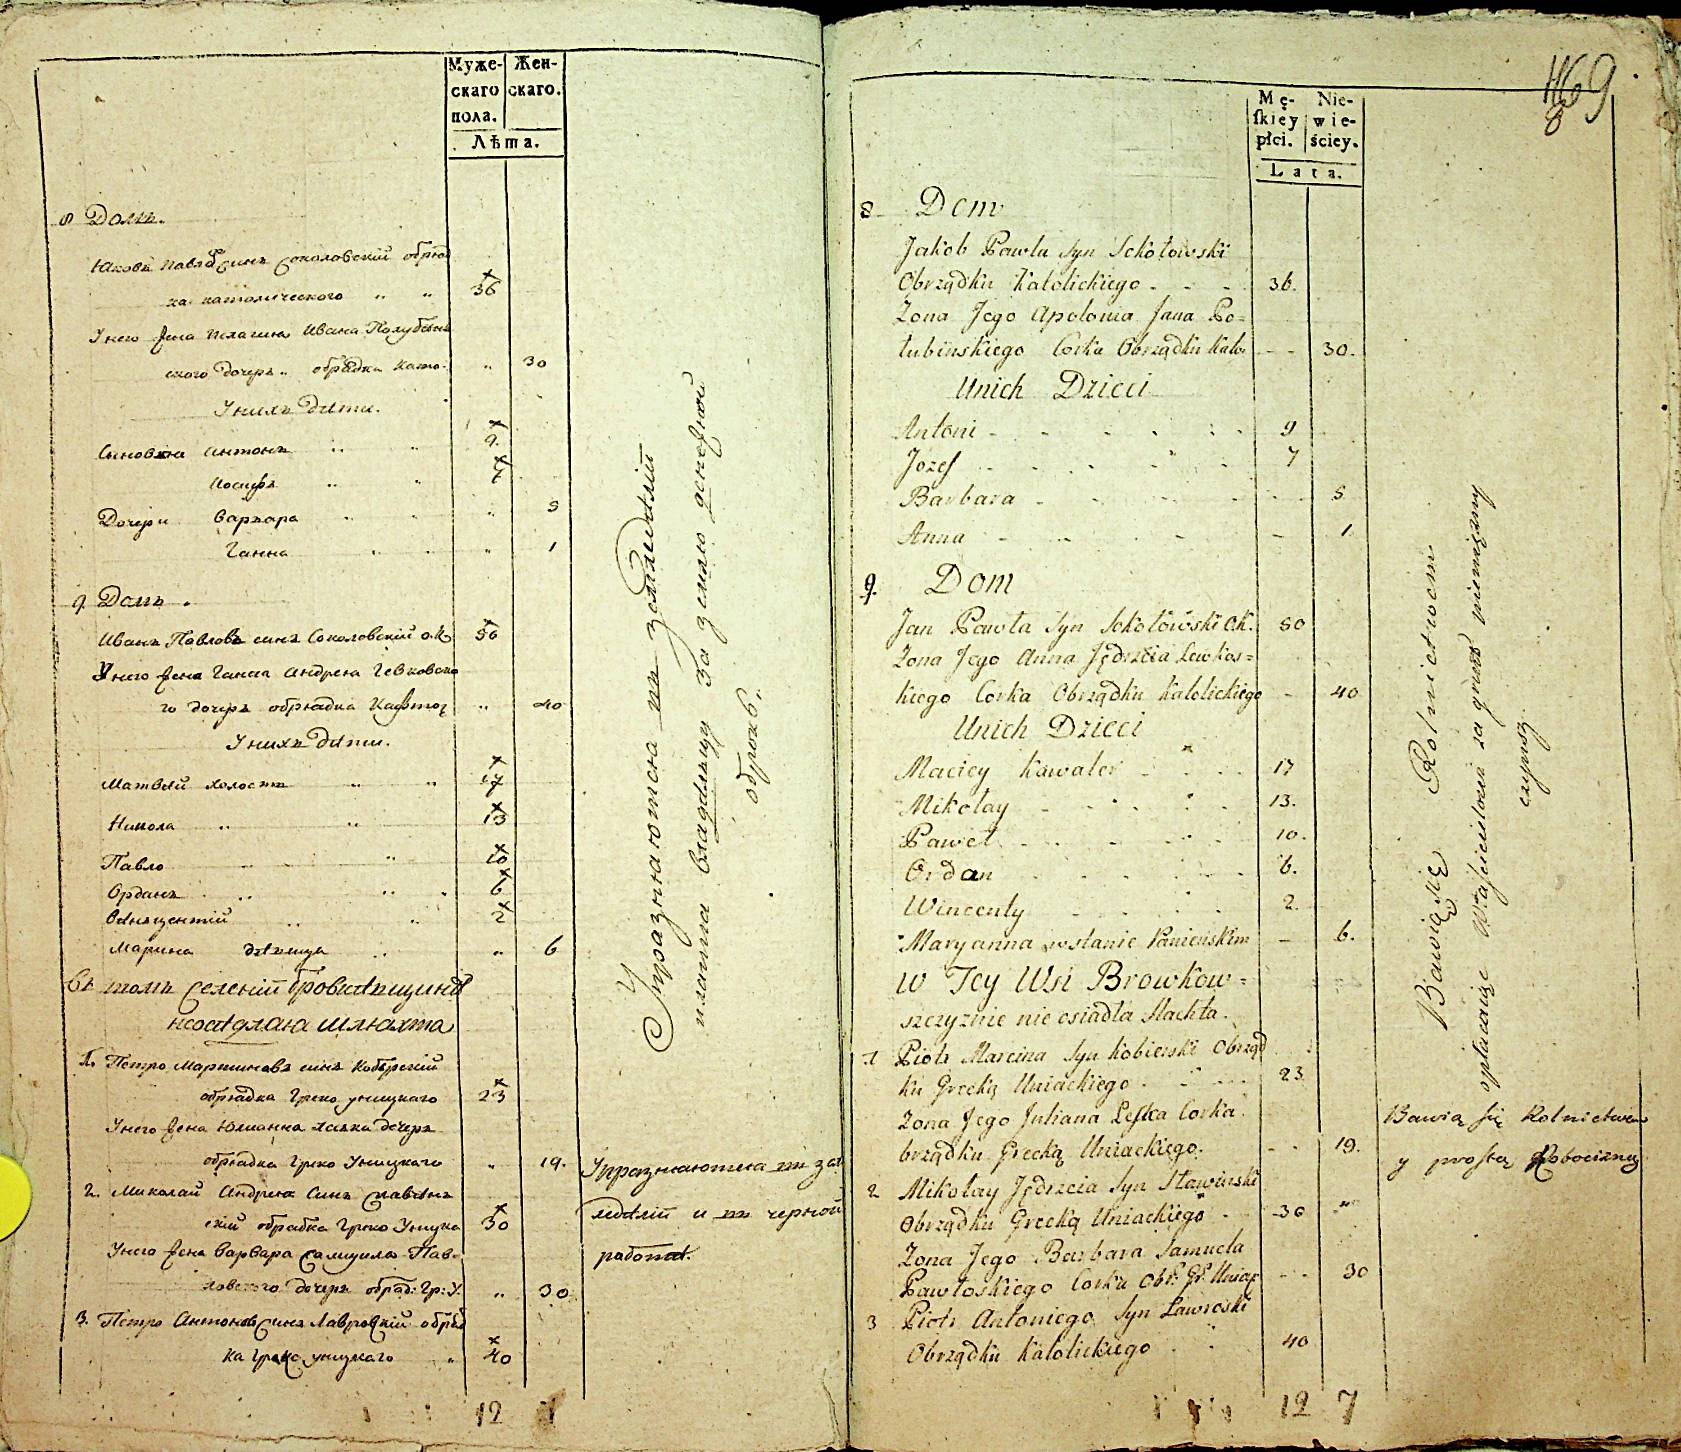 Муже-
скаго
пола.
Жен-
скаго.
Лѣта.
8 Домъ.
Юковъ Павловъ синъ Соколовскій обряд
ка католического " " 36
У него жена Пелагия Ивана Полубѣнъ
ского дочеръ " обрядка като: " 30
У нихъ дѣти.
Синовя Антонъ " " 9.
Иосифъ " " 7
Дочери Варвара " " " 5
Ганна " " " 1
9. Домъ.
Иванъ Павловъ синъ Соколовскій о.К. 50
У него жена Ганна Андрея Левковско
го дочеръ обрядка Катол " 40
У нихъ дѣти.
Матвѣй холостъ " " 17
Никола " " 13
Павло " 10
Орданъ " " 6
Винъцентій " " 2
Марина дѣвица " " 6
Въ томъ селеніи Бровкѣвщинѣ
неосѣдлая шляхта
1. Петро Мартиновъ синъ Кобѣрскій
обрядка Греко уницкаго 23
У него жена Юлианна Леска дочеръ
обрядка Греко Уницкаго " 19.
2. Миколай Андрея Синъ Славѣнъ
скій обрадка Греко Уницка 30
У него жена Варвара Самуила Пав-
ловского дочеръ обряд: Гр: У. " 30
3. Петро Антоновъ Синъ Лавровскій обряд
ка Греко уницкаго " 40
12 7
Упражняются въ земледѣліи
платя владѣльцу за землю денежной
оброкъ.
Упражняются въ зем
ледѣліи и въ черной
работѣ.
469
8
Mę-
ſkiey
płci.
Nie-
wie-
ściey.
Lata.
8 Dom
Jakob Pawła Syn Sokołowski
Obrządku Katolickiego - - - 36.
Zona Jego Apolonia Jana Po=
łubinskiego Corka Obrządku Kato - - 30.
Unich Dzieci
Antoni - - - - 9
Jozef - - - - 7
Barbara - - - - 5
Anna - - - - 1
9. Dom
Jan Pawła Syn Sokołowski O.K. 50
Zona Jego Anna Jędrzeia Lewkow=
kiego Corka Obrządku Katolickiego - 40
Unich Dzieci
Maciey Kawaler - - - 17
Mikołay - - - - 13.
Paweł - - - - 10.
Ordan - - - - 6.
Wincenty - - - 2.
Maryanna w stanie Panienskim - 6.
W Tey Wsi Browkow=
szczyznie nie osiadła Slachta.
1 Piotr Marcina Syn Kobierski Obrząd
ku Grecką Uniackiego - - - 23
Zona Jego Juliana Leſka Corka
brządku Grecką Uniackiego. - - 19.
2 Mikołay Jędrzeia Syn Sławinski
Obrządku Grecką Uniackiego - 30 "
Zona Jego Barbara Samuela
Pawłoskiego Corka Obr: Gr: Uniac - - 30
3 Piotr Antoniego Syn Ławroski
Obrządku Katolickiego - - 40
12 7
Bawią się Rolnictwem
opłacaiąc Właścicielowi za grunt pieniężny
czynsz.
Bawią się Rolnictwem
y prostą Robocizną